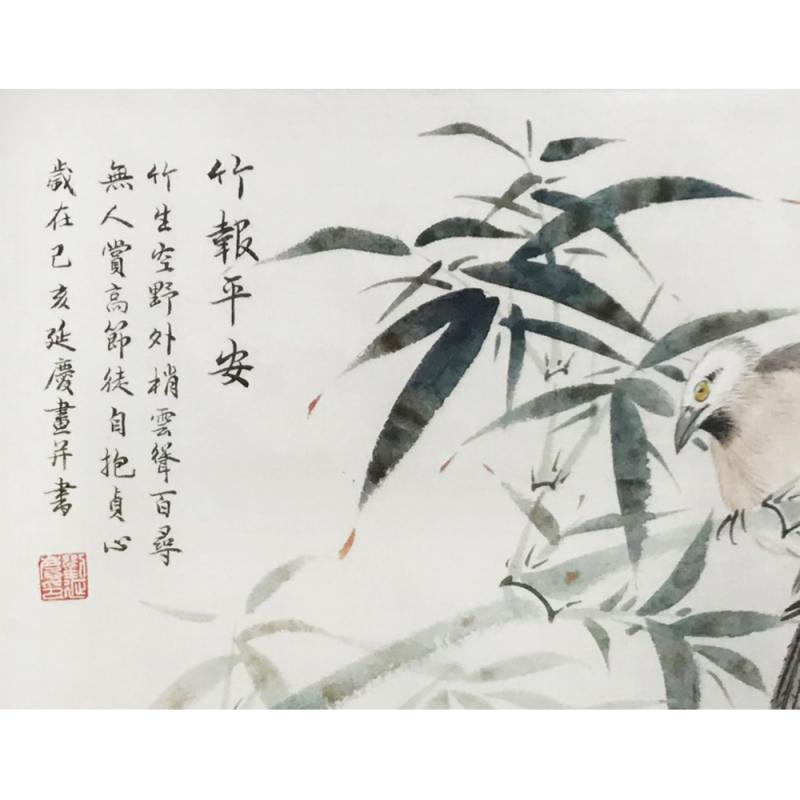 竹報平安
竹生空野外梢雲聳百尋
無人賞高節徒自抱貞心
歲在己亥延慶畫并書